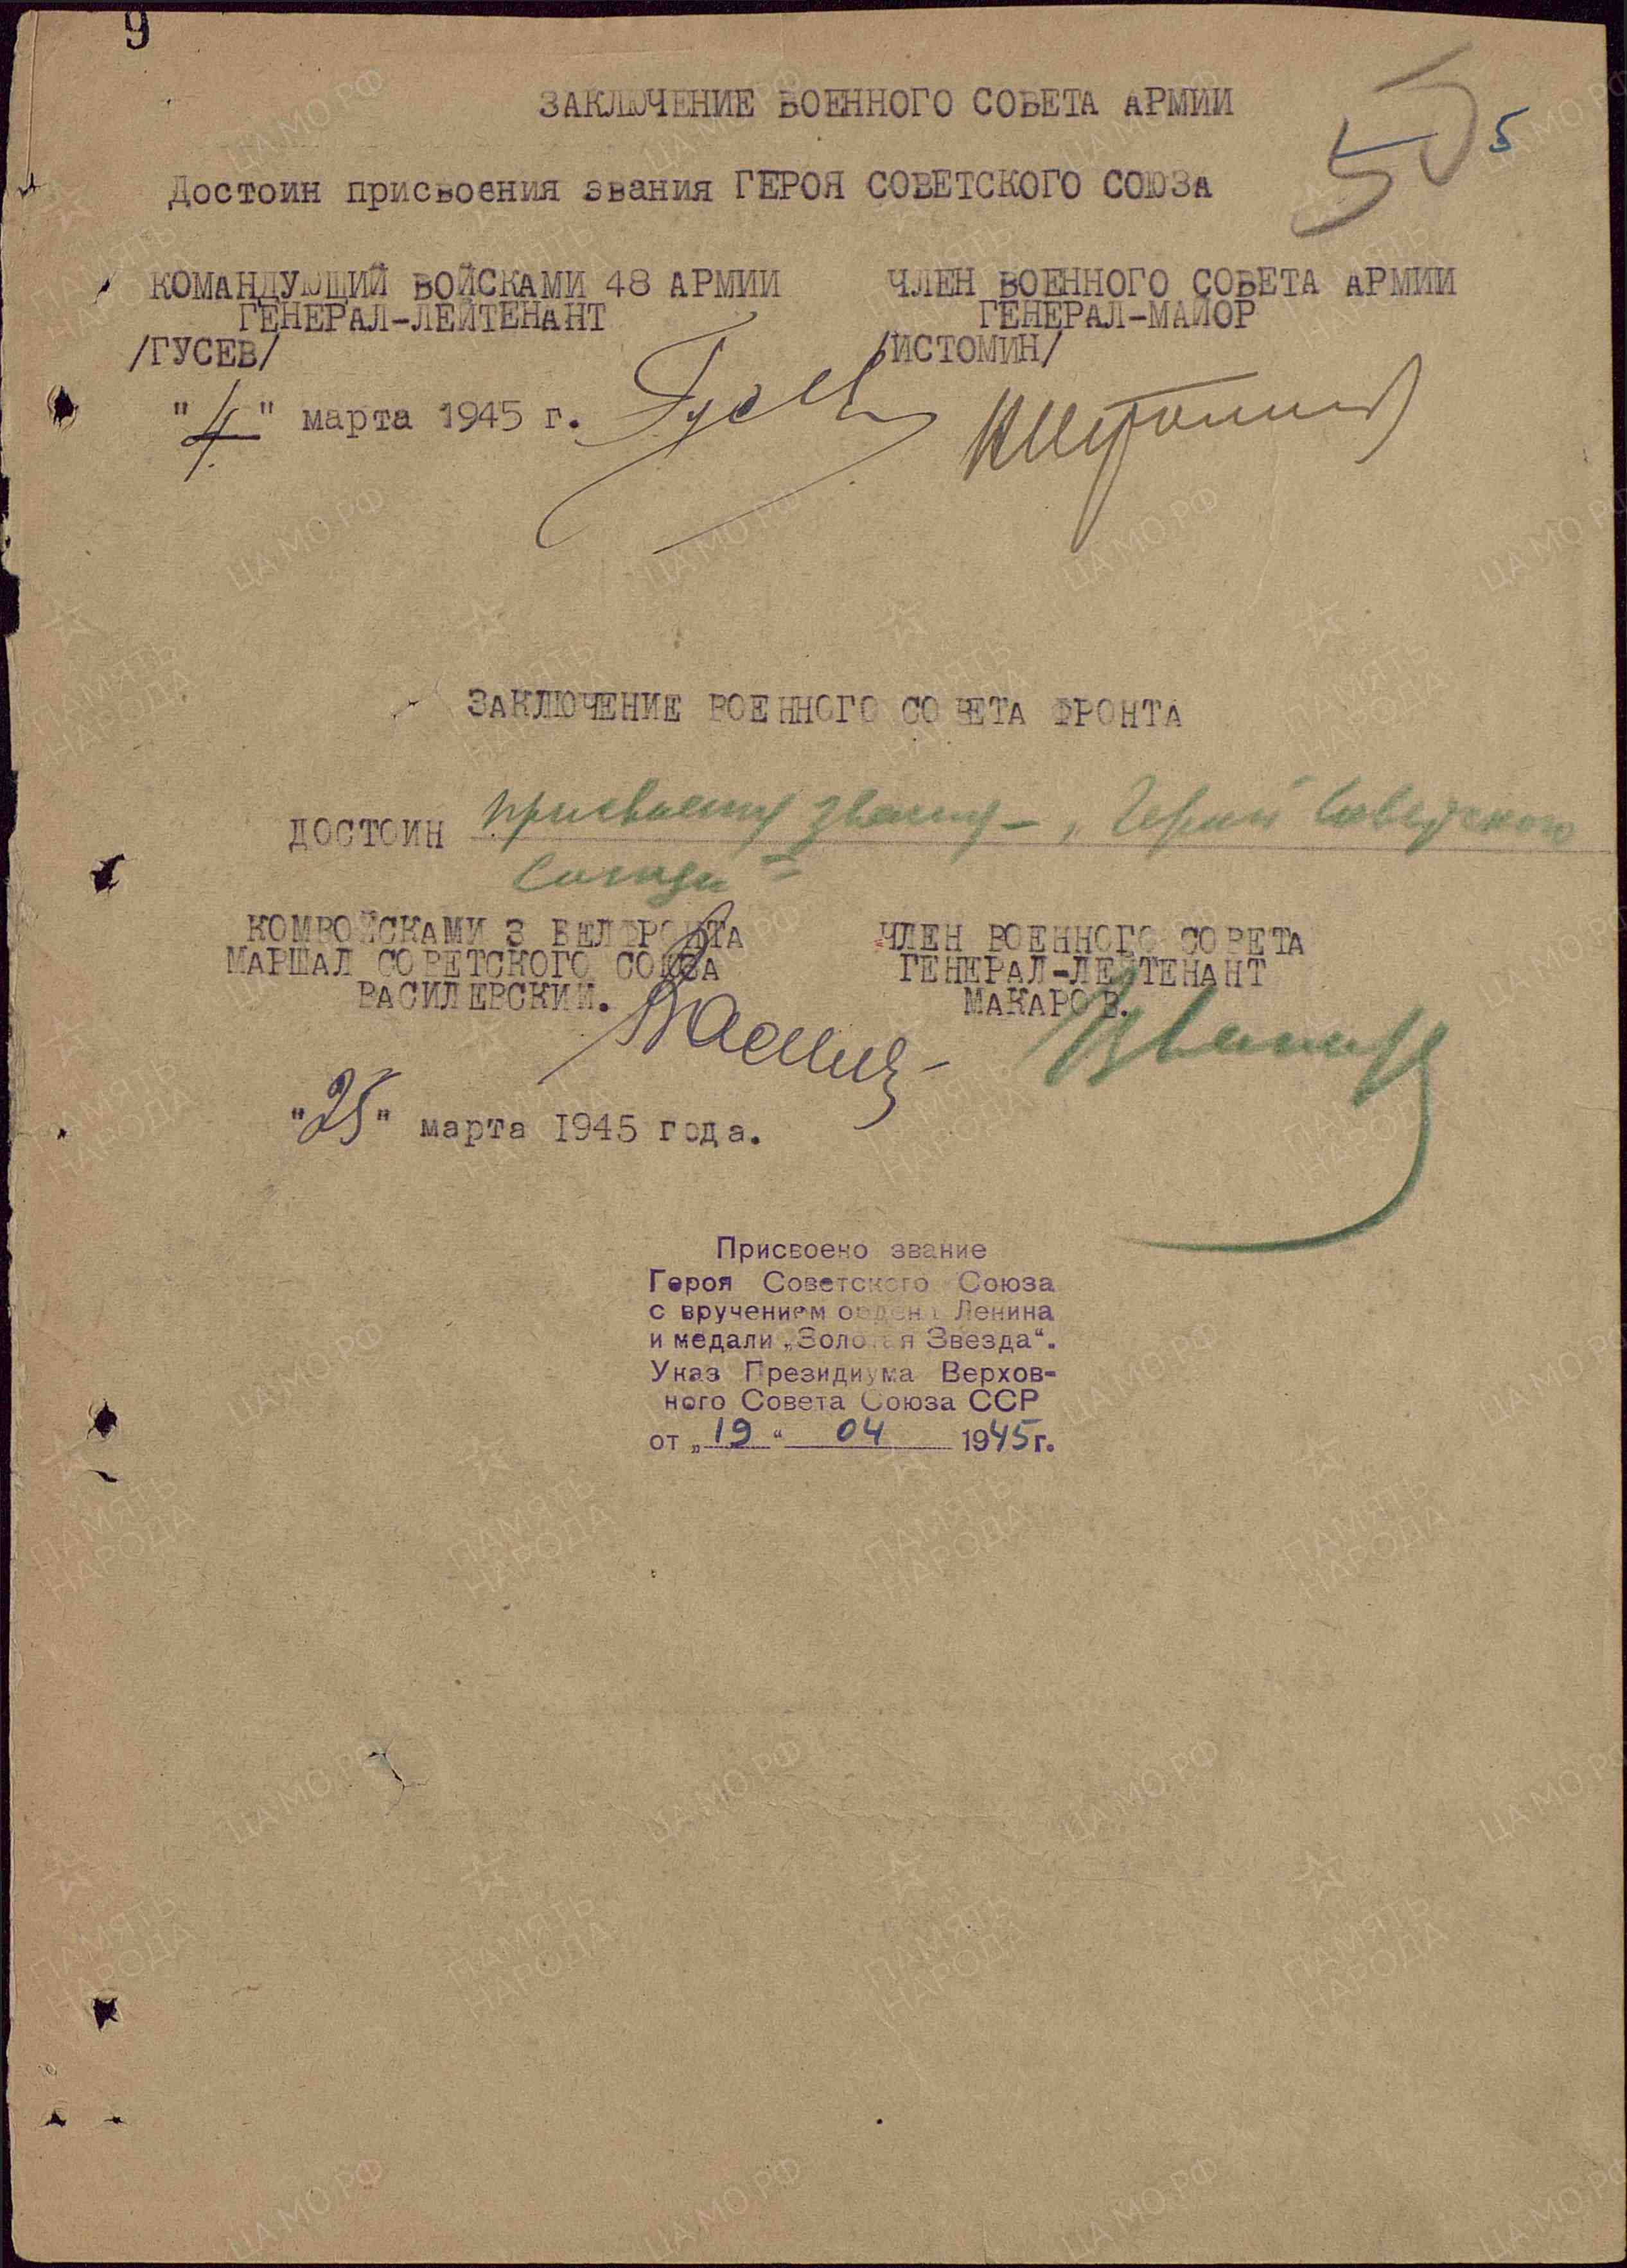 9
ЗАКЛЮЧЕНИЕ ВОЕННОГО СОВЕТА АРМИИ
50 5
Достоин присвоения звания ГЕРОЯ СОВЕТСКОГО СОЮЗА
КОМАНДУЮЩИЙ ВОЙСКАМИ 48 АРМИИ
ГЕНЕРАЛ-ЛЕЙТЕНАНТ
/ГУСЕВ/
ЧЛЕН ВОЕННОГО СОВЕТА АРМИИ
ГЕНЕРАЛ-МАЙОР
/ИСТОМИН/
"4" марта 1945 г.
ЗАКЛЮЧЕНИЕ ВОЕННОГО СОВЕТА ФРОНТА
ДОСТОИН присвоения звания "Герой Советского
Союза"
КОМВОЙСКАМИ 3 БЕЛФРОНТА
МАРШАЛ СОВЕТСКОГО СОЮЗА
ВАСИЛЕВСКИЙ.
ЧЛЕН ВОЕННОГО СОВЕТА
ГЕНЕРАЛ-ЛЕЙТЕНАНТ
МАКАРОВ.
"25" марта 1945 года.
Присвоено звание
Героя Советского Союза
с вручением ордена Ленина
и медали „Золотая Звезда“.
Указ Президиума Верхов-
ного Совета Союза ССР
от „19“ 04 1945 г.
ЦАМО.РФ
ПАМЯТЬ
НАРОДА